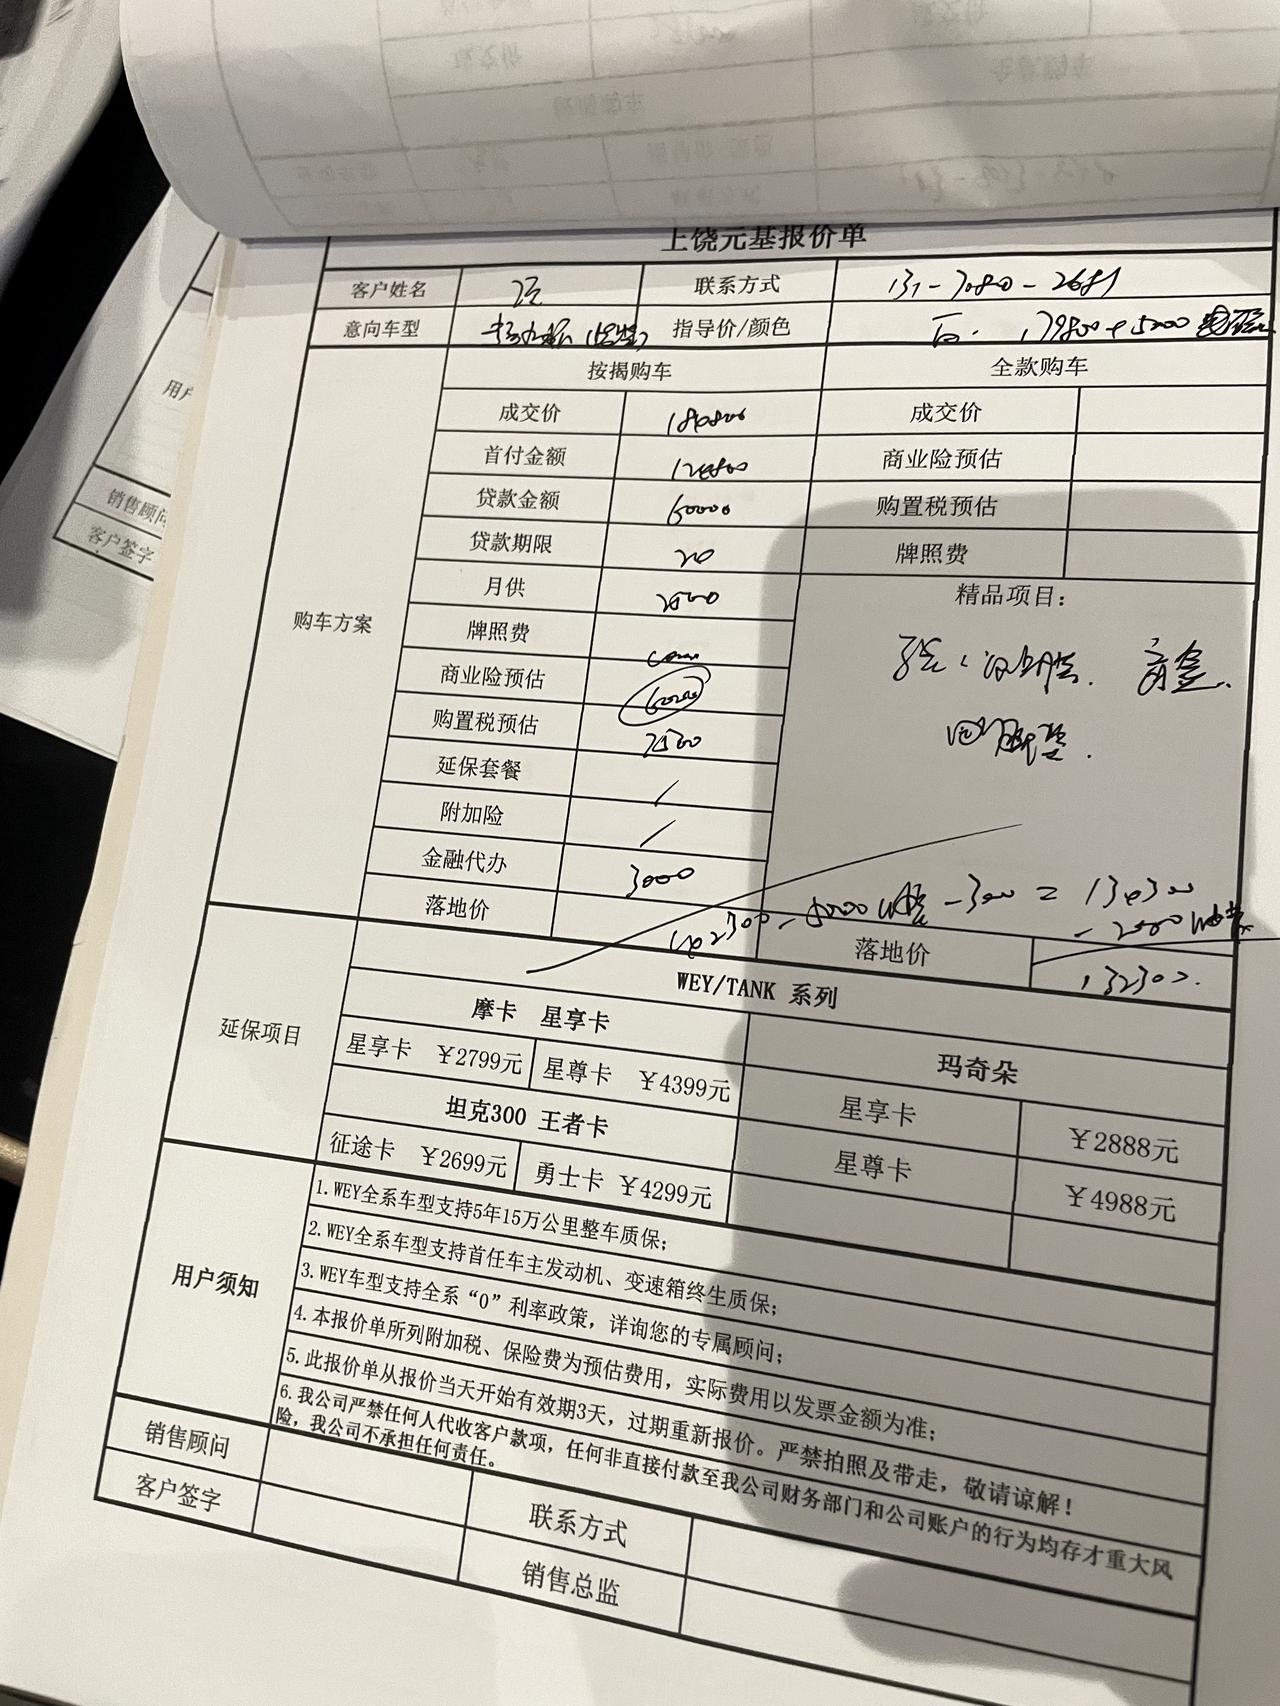 上饶元基报价单
客户姓名 联系方式 131-7080-2681
意向车型 指导价/颜色 白. 179800+5000
用户
购车方案 按揭购车 全款购车
成交价 成交价
首付金额 商业险预估
贷款金额 60000 购置税预估
贷款期限 20 牌照费
月供 精品项目：
牌照费
商业险预估 6000
购置税预估 7500
延保套餐 /
附加险 /
金融代办 3000
-3000 = 134300
落地价 落地价 132300.
销售顾问
客户签字
延保项目 WEY/TANK 系列
摩卡 星享卡 玛奇朵
星享卡 ￥2799元 星尊卡 ￥4399元 星享卡 ￥2888元
坦克300 王者卡 星尊卡 ￥4988元
征途卡 ￥2699元 勇士卡 ￥4299元
用户须知
1.WEY全系车型支持5年15万公里整车质保；
2.WEY全系车型支持首任车主发动机、变速箱终生质保；
3.WEY车型支持全系“0”利率政策，详询您的专属顾问；
4.本报价单所列附加税、保险费为预估费用，实际费用以发票金额为准；
5.此报价单从报价当天开始有效期3天，过期重新报价。严禁拍照及带走，敬请谅解！
6.我公司严禁任何人代收客户款项，任何非直接付款至我公司财务部门和公司账户的行为均存才重大风
险，我公司不承担任何责任。
销售顾问 联系方式
客户签字 销售总监